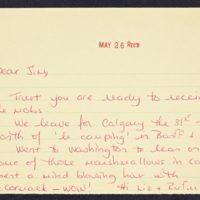 MAY 26 REC'D
Dear Jim,
Trust you are ready to receive
the mobs.
We leave for Calgary the 31st
orth of 'le camping' in Banff &
Went to Washington to lean on
one of those marshmallows in
spent a mind blowing hour with
Cormack - WOW! Hi Liz &